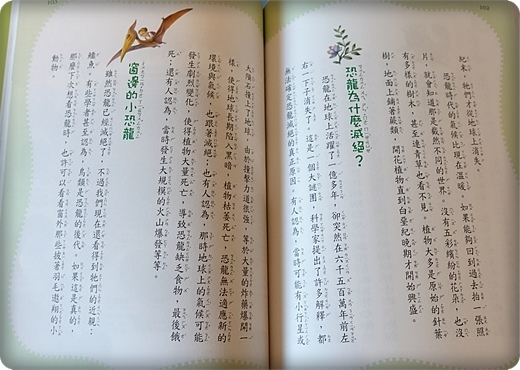 102
紀末，牠們才從地球上消失。
恐龍時代的氣候比現在溫暖。如果能夠回到過去拍一張照
片，就會知道那是截然不同的世界。沒有五彩繽紛的花朵，也沒
有多樣的樹木，甚至連青草也看不見。植物大多是原始的針葉
樹，地面上鋪著蕨類。開花植物直到白堊紀晚期才開始興盛。
恐龍為什麼滅絕？
恐龍在地球上活躍了一億多年，卻突然在六千五百萬年前左
右一下子消失了。這是一個大謎團，科學家提出了許多解釋，都
無法確定恐龍滅絕的真正原因。有人認為，當時可能有小行星或
103
大隕石撞上了地球。由於撞擊力道很強，等於大量的炸藥爆開一
樣，使得地球長期陷入黑暗，植物枯萎死亡，恐龍無法適應新的
環境與氣候，也跟著滅絕；也有人認為，那時地球上的氣候可能
發生劇烈變化，使得植物大量死亡，導致恐龍缺乏食物，最後餓
死；還有人認為，當時發生大規模的火山爆發等等。
窗邊的小恐龍
雖然恐龍已經滅絕了，不過我們現在還看得到牠們的近親：
鱷魚。有些學者甚至認為，鳥類是恐龍的後代，如果這是真的，
那麼下次想看恐龍時，也許可以看看窗外那些披著羽毛遨翔的小
動物。